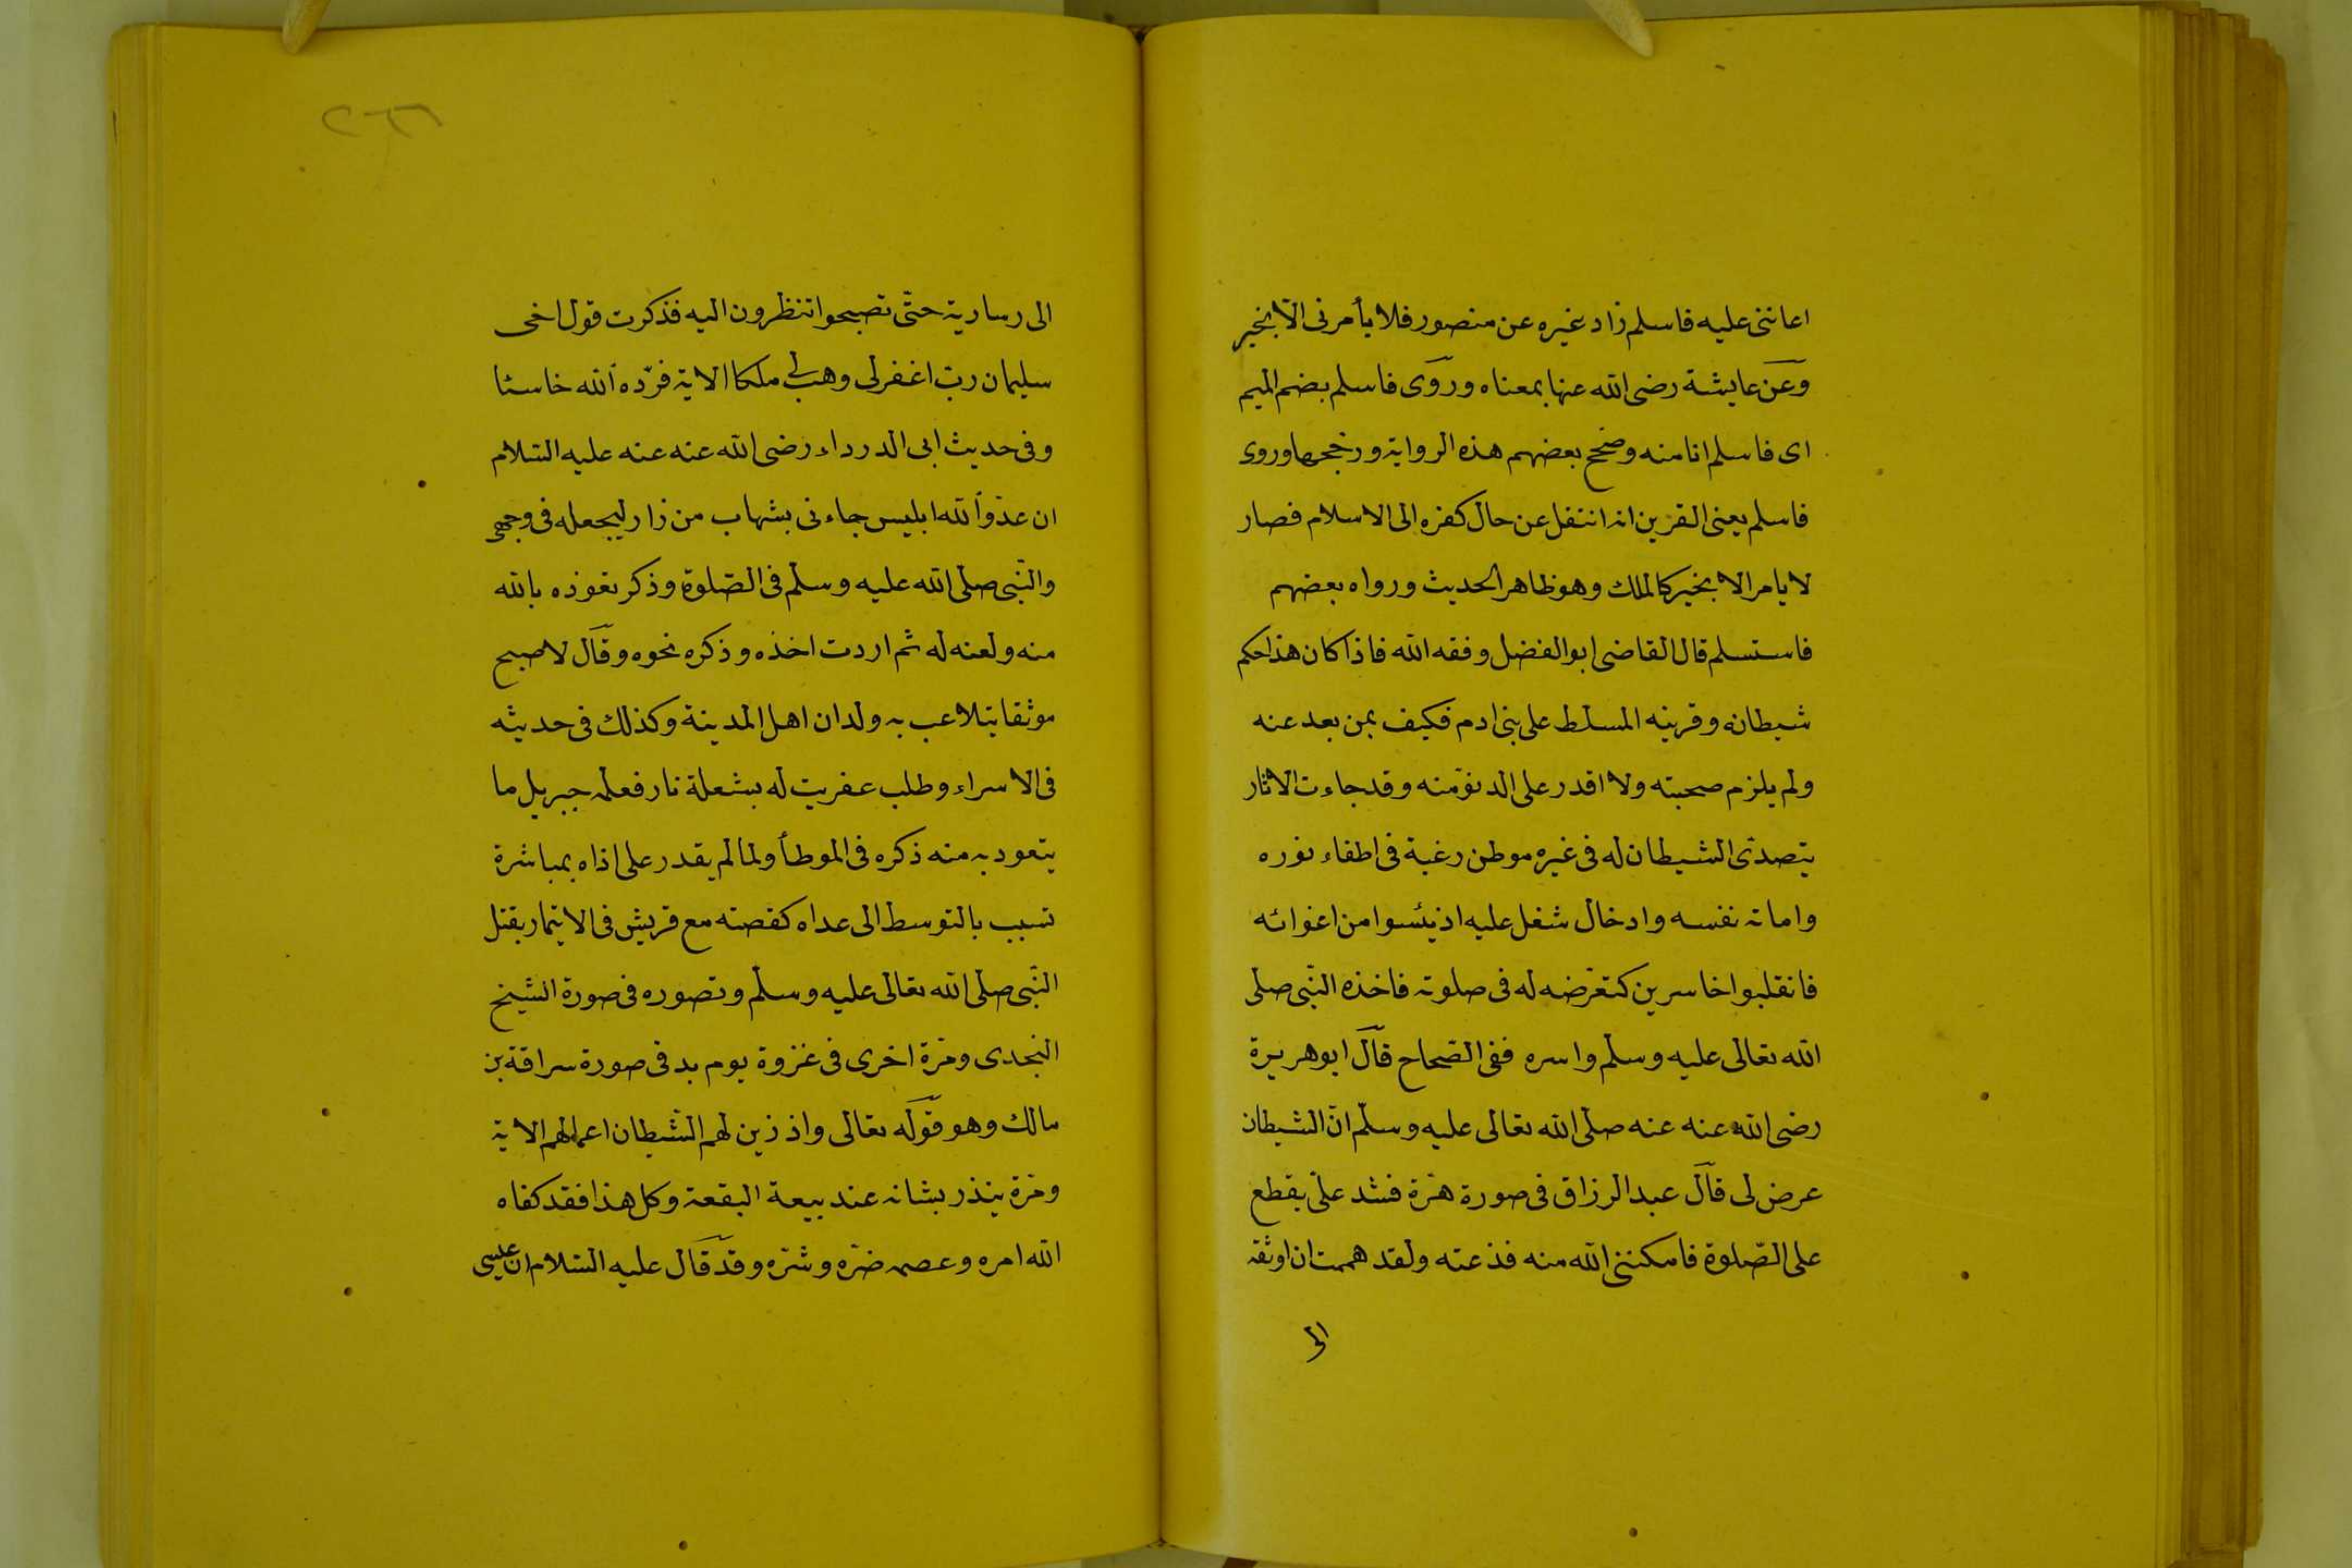 اعاننى عليه فاسلم زاد غيره عن منصور فلا يأمرنى الا بخير
وعن عايشة رضى الله عنها بمعناه وروى فاسلم بضم الميم
اى فاسلم انا منه وصحح بعضهم هذه الرواية ورجحها وروى
فاسلم يعنى القرين انه انتقل عن حال كفره الى الاسلام فصار
لا يامر الا بخير كالملك وهو ظاهر الحديث ورواه بعضهم
فاستسلم قال القاضى ابو الفضل وفقه الله فاذا كان هذا حكم
شيطانه وقرينه المسلط على بنى ادم فكيف بمن بعد عنه
ولم يلزم صحبته ولا اقدر على الدنو منه وقد جاءت الاثار
يتصدى الشيطان له فى غيره موطن رغبة فى اطفاء نوره
واماتة نفسه وادخال شغل عليه اذ يئسوا من اغوائه
فانقلبوا خاسرين كتعرضه له فى صلوته فاخذه النبى صلى
الله تعالى عليه وسلم واسره ففى الصحاح قال ابو هريرة
رضى الله عنه عنه صلى الله تعالى عليه وسلم ان الشيطان
عرض لى قال عبد الرزاق فى صورة هرة فشد على يقطع
على الصلوة فامكننى الله منه فذعته ولقد هممت ان اوثقه
الى
الى رسارية حتى تصبحوا تنظرون اليه فذكرت قول اخى
سليمان رب اغفر لى وهب لى ملكا الاية فرده الله خاسئا
وفى حديث ابى الدرداء رضى الله عنه عنه عليه السلام
ان عدو الله ابليس جاءنى بشهاب من زار ليجعله فى وجهى
والنبى صلى الله عليه وسلم فى الصلوة وذكر تعوذه بالله
منه ولعنه له ثم اردت اخذه وذكره نحوه وقال لاصبح
موثقا يتلاعب به ولدان اهل المدينة وكذلك فى حديثه
فى الاسراء وطلب عفريت له بشعلة نار فعلمه جبريل ما
يتعود به منه ذكره فى الموطأ ولما لم يقدر على اذاه بمباشرة
تسبب بالتوسط الى عداه كقصته مع قريش فى الايتمار بقتل
النبى صلى الله تعالى عليه وسلم وتصوره فى صورة الشيخ
النجدى ومرة اخرى فى غزوة يوم بد فى صورة سراقة بن
مالك وهو قوله تعالى واذ زين لهم الشيطان اعمالهم الاية
ومرة ينذر بشانه عند بيعة البقعة وكل هذا فقد كفاه
الله امره وعصمه ضره وشره وقد قال عليه السلام ان عيسى